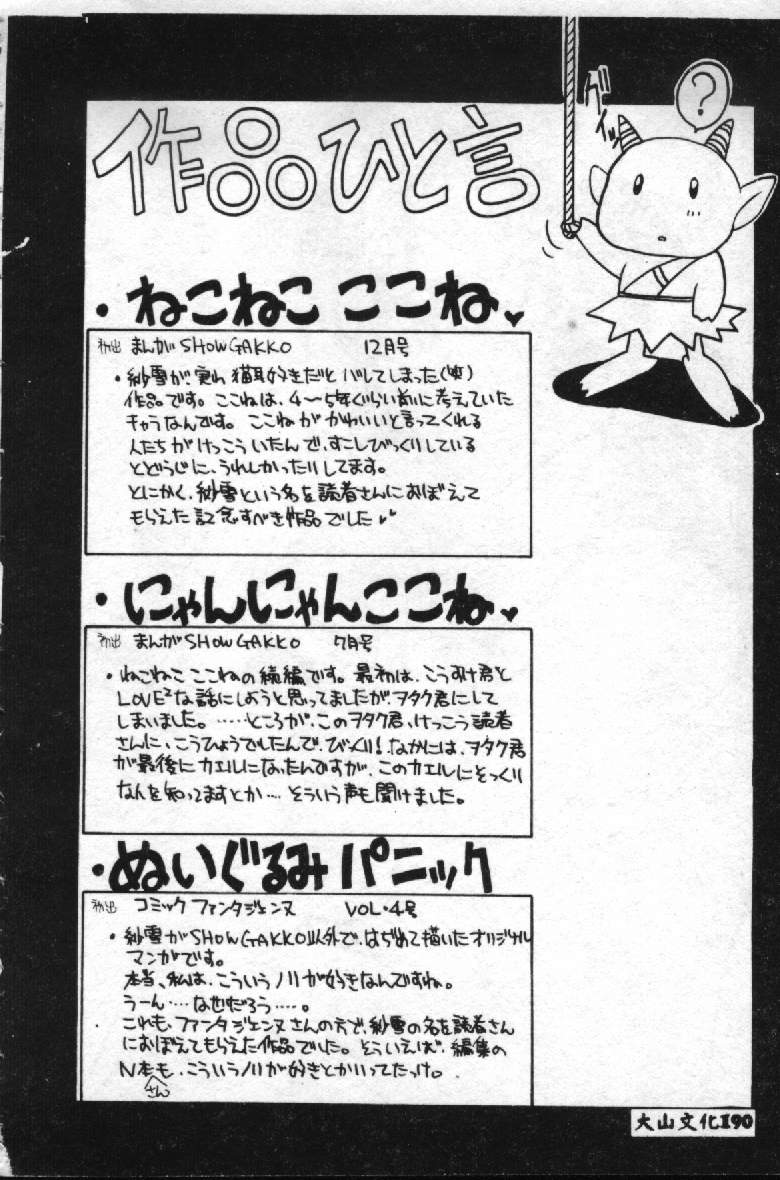 作品ひと言
グイッ
?
・ねこねこ ここね♥
初出 まんがSHOW GAKKO 12月号
・紗雪が、実は猫耳好きだとバレてしまった(笑)
作品です。ここねは、4〜5年ぐらい前に考えていた
キャラなんです。ここねがかわいいと言ってくれる
人たちがけっこういたんで、すこしびっくりしている
とどうじに、うれしかったりしてます。
とにかく、紗雪という名を読者さんにおぼえて
もらえた記念すべき作品でした♥♥
・にゃんにゃんここね♥
初出 まんがSHOW GAKKO 7月号
・ねこねこ ここねの続編です。最初は、こうすけ君と
LOVE²な話にしようと思ってましたが、ヲタク君にして
しまいました。……ところが、このヲタク君、けっこう読者
さんに、こうひょうでしたんで、びっくり!なかには、ヲタク君
が最後にカエルになったんですが、このカエルにそっくり
なんを知ってますとか…そういう声も聞けました。
・ぬいぐるみパニック
初出 コミックファンタジェンヌ VOL・4号
・紗雪がSHOW GAKKO以外で、はじめて描いたオリジナル
マンガです。
本当、私は、こういうノリが好きなんですね。
うーん…なぜだろう……。
これも、ファンタジェンヌさんの方で、紗雪の名を読者さん
におぼえてもらえた作品でした。そういえば、編集の
N本さんも、こういうノリが好きとかいってたっけ。
大山文化I90